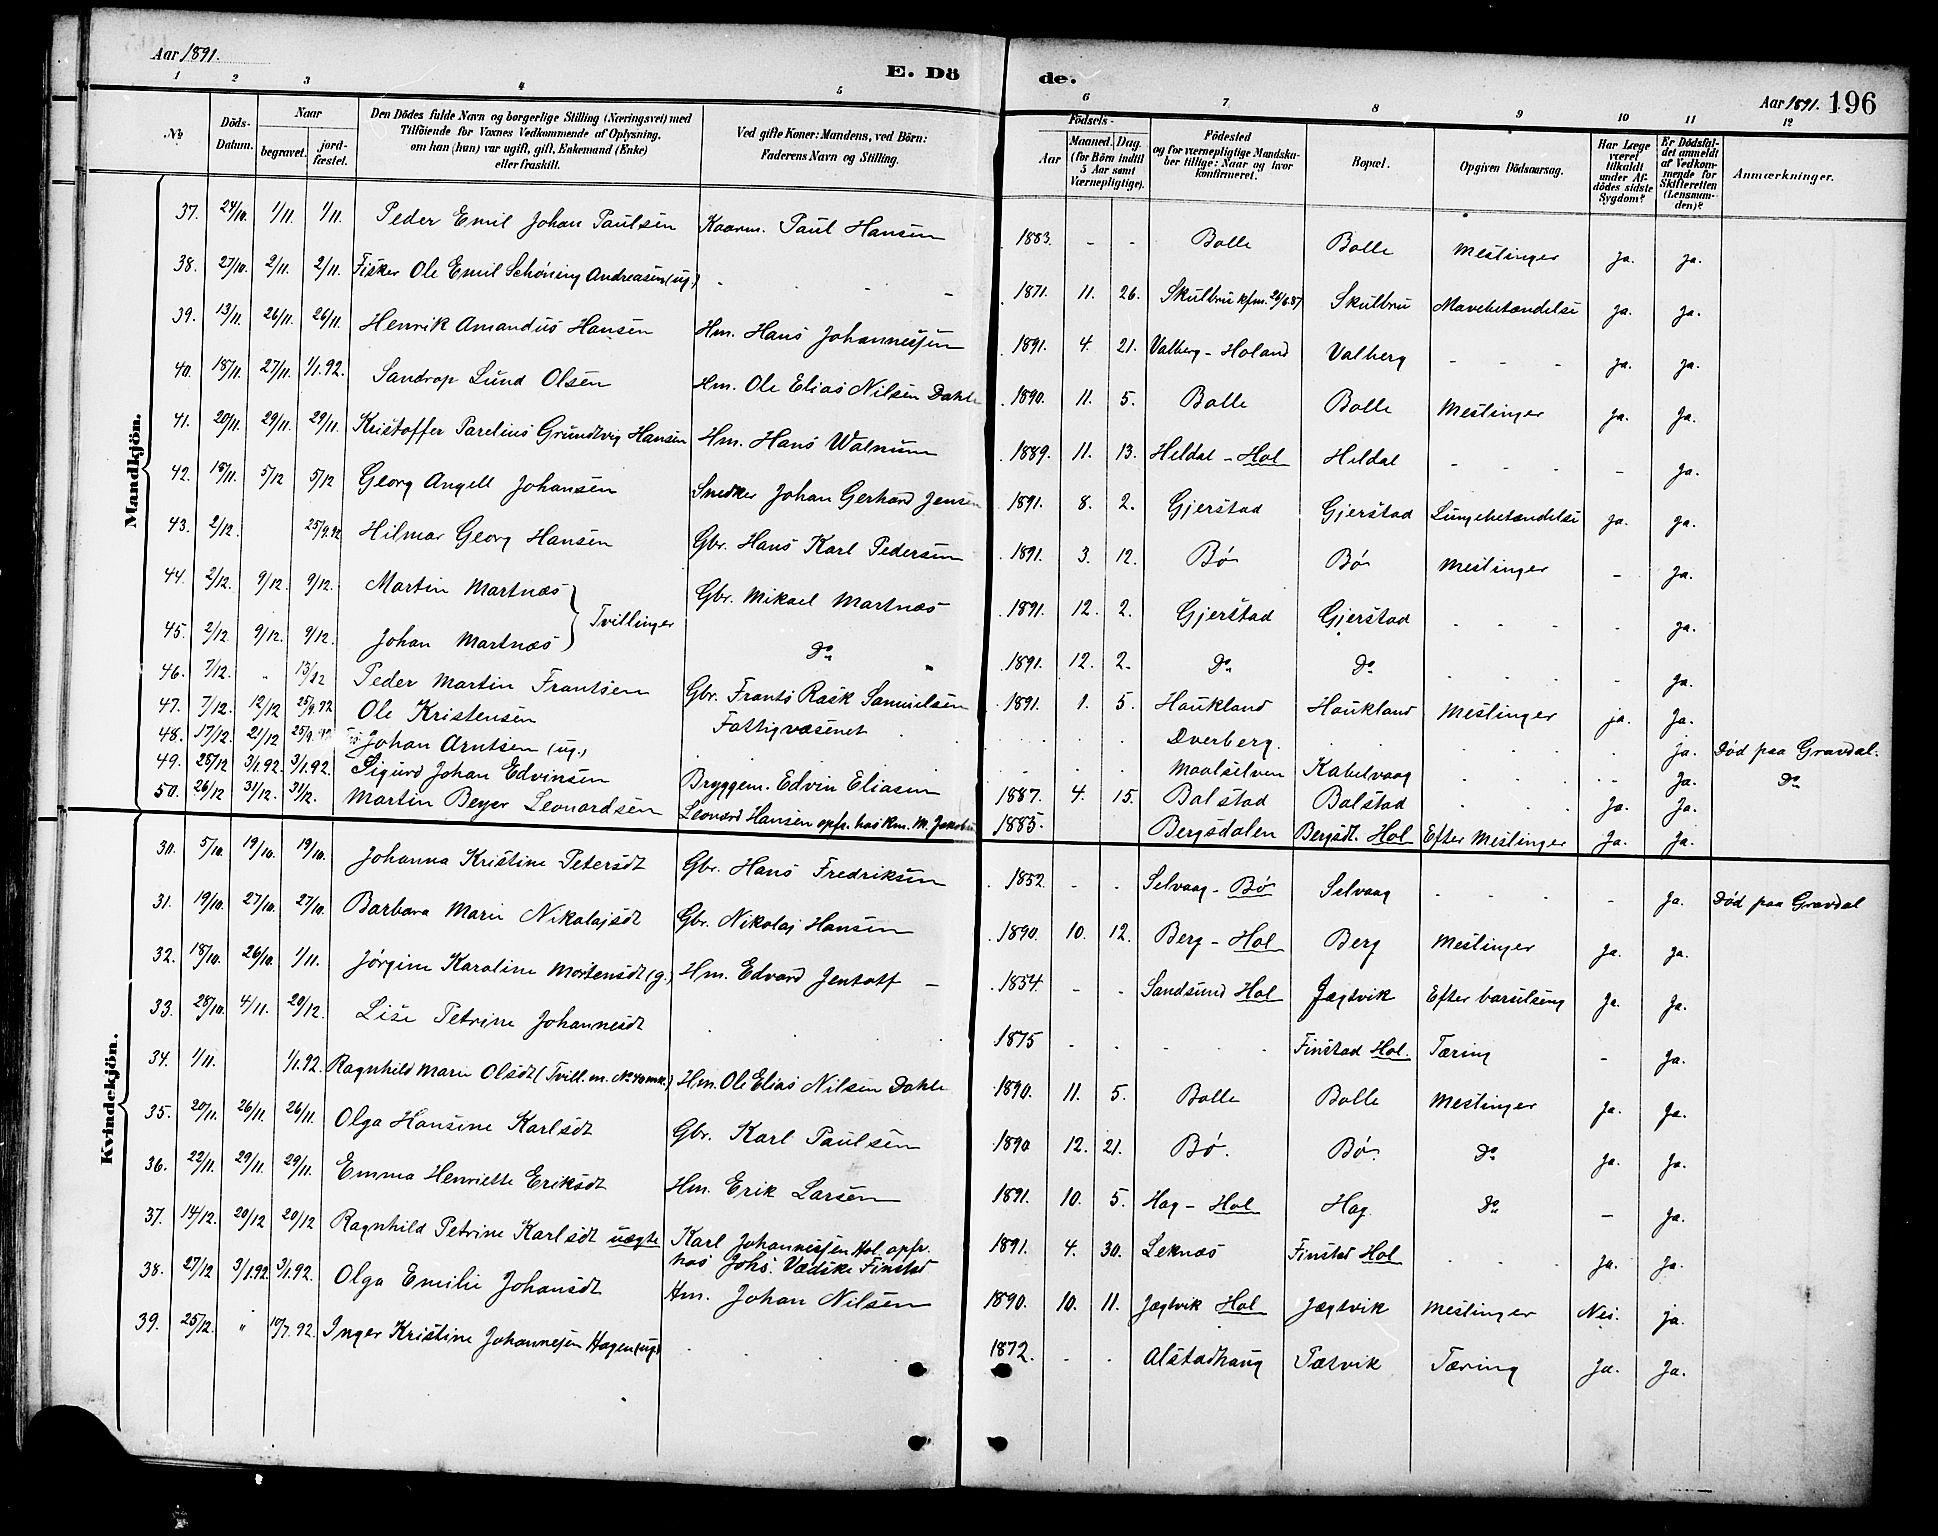 Aar 1891.
E. Dö
de.
Aar 1891. 196
1 2 3 4 5 6 7 8 9 10 11 12
No
Döds-Datum.
Naar
begravet.
jord-fæstet.
Den Dödes fulde Navn og borgerlige Stilling (Næringsvei) med
Tilföiende for Voxnes Vedkommende af Oplysning,
om han (hun) var ugift, gift, Enkemand (Enke)
eller fraskilt.
Ved gifte Koner: Mandens, ved Börn:
Faderens Navn og Stilling.
Födsels-
Aar
Maaned. Dag.
(for Börn indtil 5 Aar samt Værnepligtige).
Födested
og for værnepligtige Mandskaber tillige: Naar og hvor konfirmeret.
Bopæl.
Opgiven Dödsaarsag.
Har Læge været tilkaldt under Afdödes sidste Sygdom?
Er Dödsfaldet anmeldt af Vedkommende for Skifteretten (Lensmanden)?
Anmærkninger.
Mandkjön.
37. 24/10. 1/11. 1/11. Peder Emil Johan Paulsen Kaarm. Paul Hansen 1883. - - Bolle Bolle Meslinger Ja. Ja.
38. 27/10. 2/11. 2/11. Fisker Ole Emil Schöning Andreasen (ug.) - - - 1871. 11. 26. Skulbru kfm. 26/6 87 Skulbru Mavebetændelse Ja. Ja.
39. 13/11. 26/11. 26/11. Henrik Amandus Hansen Hm. Hans Johannesen 1891. 4. 21. Valberg - Holand Valberg - - - Ja. Ja.
40. 18/11. 27/11. 1/1.92. Sandrop Lund Olsen Hm. Ole Elias Nilsen Dahle 1890. 11. 5. Bolle Bolle Meslinger Ja. Ja.
41. 20/11. 29/11. 29/11. Kristoffer Parelius Grundtvig Hansen Hm. Hans Walnum 1889. 11. 13. Hildal - Hol Hildal - - - - Ja.
42. 18/11. 5/12 5/12 Georg Angell Johansen Snedker Johan Gerhard Jensen 1891. 8. 2. Gjerstad Gjerstad Lungebetændelse Ja. Ja.
43. 2/12. 25/9.92 Hilmar Georg Hansen Gbr. Hans Karl Pedersen 1891. 3. 12. Bø Bø Meslinger - Ja.
44. 2/12. 9/12. 9/12. Martin Martnæs } Tvillinger Gbr. Mikael Martnæs 1891. 12. 2. Gjerstad Gjerstad - - - - Ja.
45. 2/12. 9/12. 9/12. Johan Martnæs Do 1891. 12. 2. Do Do - - - - Ja.
46. 7/12. " 13/12 Peder Martin Frantsen Gbr. Frants Rask Samuelsen 1891. 1. 5. Haukland Haukland Meslinger Ja. Ja.
47. 7/12. 12/12 25/9.92 Ole Kristensen Fattigvæsenet - - - Dverberg. - - - - Ja. Død paa Gravdal.
48. 17/12. 21/12 Johan Arntsen (ug.) - - - - - - Maalselven Kabelvaag - - - - Ja. Do
49. 25/12 3/1.92. 3/1.92. Sigurd Johan Edvinsen Bryggem. Edvin Eliasen 1887. 4. 15. Balstad Balstad - - - Ja. Ja.
50. 26/12 31/12. 31/12. Martin Beyer Leonardsen Leonard Hansen opfr. hos Km. M. Jakobsen 1885. Bergsdalen Bergsdl. Hol Efter Meslinger Ja. Ja.
Kvindekjön.
30. 5/10 19/10. 19/10. Johanna Kristine Petersdt Gbr. Hans Fredriksen 1852. - - Selvaag - Bø Selvaag - - - - Ja. Død paa Gravdal
31. 19/10. 27/10. 27/10. Barbara Marie Nikolajsdt Gbr. Nikolaj Hansen 1890. 10. 12. Berg - Hol Berg Meslinger Ja. Ja.
32. 18/10. 26/10. 1/11. Jørgine Karoline Mortensdt (g.) Hm. Edvard Jentoft - 1854. - - Sandsund Hol Jægtvik Efter barulseng Ja. Ja.
33. 28/10. 4/11. 20/12. Lise Petrine Johannesdt - - 1875 - - - - Finstad Hol. Tæring - Ja.
34. 1/11. 1/1.92. Ragnhild Marie Olsdt (Tvill. m. No 40 mk.) Hm. Ole Elias Nilsen Dahle 1890. 11. 5. Bolle Bolle Meslinger Ja. Ja.
35. 20/11. 26/11. 26/11. Olga Hansine Karlsdt Gbr. Karl Paulsen 1890 12. 21. Bø. Bø. Do Ja. Ja.
36. 22/11. 29/11. 29/11. Emma Henriette Eriksdt Hm. Erik Larsen 1891. 10. 5. Hag - Hol Hag. Do - Ja.
37. 14/12. 20/12 20/12 Ragnhild Petrine Karlsdt uægte Karl Johannesen Hol opfr.
hos Johs. Vædske Finstad 1891. 4. 30. Leknæs Finstad Hol - - - Ja. Ja.
38. 27/12 3/1.92. 3/1.92. Olga Emilie Johansdt Hm. Johan Nilsen 1890. 10. 11. Jægtvik Hol Jægtvik Meslinger Nei. Ja.
39. 25/12. " 10/7.92. Inger Kristine Johannesen Hagen (ug) - - - 1872. - - Alstadhaug Petvik Tæring Ja. Ja.